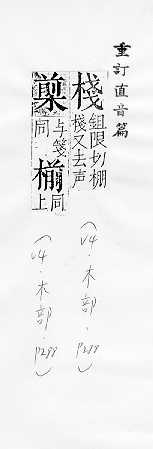 重訂直音篇
棧 鉏限切棚
棧又去声
（V4．木部．P277）
𣙙 与箋同
椾 同上
（V4．木部．P277）